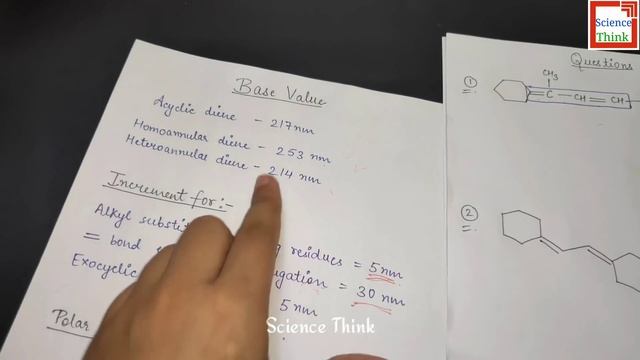 Science
Think
Base Value
Acyclic diene - 217 nm
Homoannular diene - 253 nm
Heteroannular diene - 214 nm
Increment for:-
Alkyl
residues = 5 nm
= bond
= 30 nm
Exocyclic
5 nm
Polar
Questions
①
CH3
=C-CH=CH-
②
Science Think